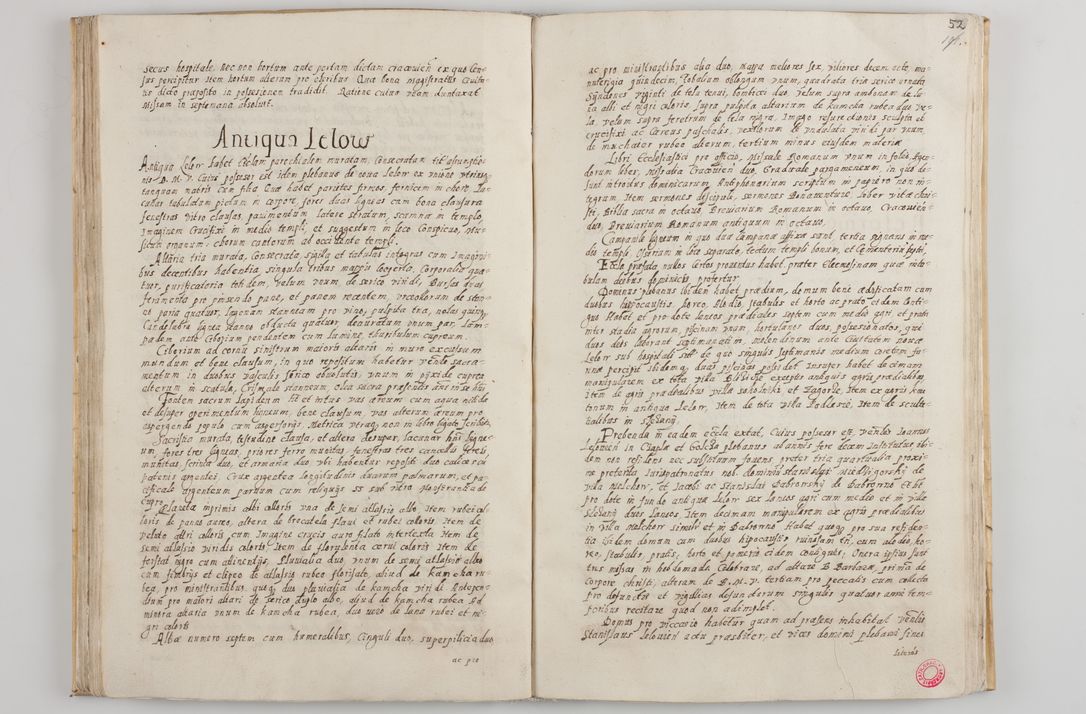 secus hospitale, nec non hortum ante portam dictam cracovien ex quo cen-
sus percipitur Item hortum alterum pro Quæ bona magistratus Civita-
tis dicto præposito in possesionem tradidit. Ratione cuius unam duntaxat
Missam in septenana absolvit.
Antiqua Lelow
Antiqua Lelow habet Ecclam parochialem muratam, Consecratam tit. assumptio-
nis B. M. V. Cuius possesor est idem plebanus de nova Lelow ex unione utriusq
tanquam matris cum filia Quæ habet parietes firmos, fornicem in choro La-
cunar tabulatum pictum in corpore, fores duas ligneas cum bona clausura
fenestras vitro clausas, pavimentum latere stratum, scamna in templo,
Imaginem Crucifixi in medio templi, et suggestum in loco Conspicuo,
organum, chorum cantorum ad occidente templi.
Altaria tria murata, consecrata, sigilla et tabulas integras cum Imagini-
bus decentibus habentia singula tribus mappis cooperta. Corporalia qua-
tuor, purificatoria tot dem, velum unum de serico viridi, Bursas duas
ferimenta pro pinsendo pane, et panem recentem, urceolorum de stan-
no paria quatuor, lagenam stanneam pro vino, pulpita tria, nolas quinq
Candelabra lignea stanno obducta quatuor, deauratum unum par, Lam-
padem ante Ciborium pendentem cum lumine, thuribulum cupreum.
Ciborium ad cornu sinistrum maioris altaris in muro excisum
mundum et bene clausum, in quo repositum habetur venle sacra-
mentum in duobus vasculis serico obvolutis, unum in pixide cuprea
alterum in scatula, Crismale stanneum, olea sacra præsentis ani in se hns
Fontem sacrum lapideum et intus vas æreum cum aqua nitida
et desuper operimentum ligneum, bene clausum, vas alterum æreum pro
aspergendo populo cum aspersorijs, Metrica utraq non in libro ligato scribitur
Sacristia murata, testudine clausa, et altera desuper, Lacunar hns ligne-
um, fores tres ligneas, priores ferro munitas, fenestras tres cancellis ferreis
munitas, scrinia duo, et armaria duo ubi habentur repositi duo calices cu
patenis argentei, Crux argentea longitudinis duarum palmarum, et pa-
cificale argenteum parvum cum reliquijs ss sub vitro Monstrantia de
cupro
Casula inprimis albi coloris una de semi attlassio albo Item rubei co-
loris de panno aureo, altera de brocadela flavi et rubei coloris, Item de
veluto altri coloris cum Imagine crucis auro filato intertexta Item de
semi attlassio viridis coloris, Item de florydenea cærul coloris Item de
ferstat nigro cum adtinentijs, Pluvialia duo, unum de semi attlassio albo
cum fimbrijs et clipeo de attlassio rubeo florisato, aliud de kamcha ru-
bea, pro ministrantibus quoq duo pluvialia de kamcha viridi. Antepen-
dium pro maiori altari de serico duplo albo, aliud de kamcha rubea Ad
minora altaria unum de kamcha rubea, duo vero de lana rubei et ni-
gri coloris
Albæ numero septem cum humeralibus, Cinguli duo, superpilicia duo
ac pro
52
ac pro ministrantibus alia duo, Mappæ meliores sex, viliores decem octo, ma-
nutergia quindecim, Tobalum oblongum unum, quadrata tria serico ornata
Syndones viginti de tela tenui, bombicei duo, velum supra ambonam de la-
na albi et nigri coloris, supra pulpita altarium de kamcha rubea duo ve-
la, velum supra feretrum de tela nigra, Imago resurectionis sculpta et
crucifixi ac Cæreus paschalis, vexillorum de undulata viridi par unum
de muchaiar rubeo alterum, tertium minus eiusdem materiæ
Libri Ecclesiastici pro officio, Missale Romanum unum in folio, Agen-
dorum liber, Missalia Cracovien duo, Graduale pargameneum, in quo de-
sunt introdus dominicarum, Antiphonarium scriptum in papiero non in-
tegrum Item sermones discipuli, sermones Bonaventuræ, Liber vitæ chri-
sti, Biblia sacra in octavo Breviarium Romanum in octavo, Cracovien-
duo, Breviarium Romanum antiquum in octavo.
Campanile ligneum in quo duæ campanæ affixæ sunt, tertia signans in me-
dio templi, Ossarium in via separato, tectum templi bonum, et Cementerium septi,
Eccle præfata nullos Certos proventus habet præter Eleemosinam quæ in ta-
bulam diebus dominicis profertur.
Dominus plebanus ibidem habet prædium, domum bene ædificatam cum
duobus hypocaustis, horreo, bledio, stabules et horto ac prato eidem Conti-
guo Habet et pro dote lanios prædiales septem cum medio agri et prati
inter stadia agrorum, piscinam unam, hortulanos duos, possesionatos, qui
duos dies laborant septimanatim, molendinum ante Civitatem novæ
Lelow sub hospitali situ de quo singulis septimanis medium coretum fa-
rinæ percipit Ibidem duas piscinas possidet Insuper habet decimam
manipularem ex tota villa Bliżyce exceptis antiquis agris prædialibus
Item de agris prædialibus villæ sokolniki et Zagorze, Item ex agris kme-
tonum in antiqua Lelow, Item de tota villa Podlesie, Item de scultetia-
libus in
Prebenda in eadem eccla extat, Cuius possesor est venles Ioannes
Lelovien in Czaple et plebanus ab annis fere decem Institutus ibi-
dem non residens nec substitutum fovens præter tria quartualia proxi-
me preterita Iurispatronatus nob. dominis stanislai niedzwgorskij de
villa Melchow, et Iacobi ac Stanislai Dabrowskij de Dabrowno Et hēt
pro dote in fundo antiquæ Lelow sex Lanios agri cum medio et in villa
duos Lanios, Item decimam manipularem ex agris prædialibus
in villa Melchow similiter et in Dabrowno. Habet quoq pro sua residen-
tia ibidem domum cum duobus hipocaustis, ruinosam tn. cum aledio, ho-
rreo, stabulis, pratis, horto et pomerio eidem contiguis, Onera ipsius sunt
tres missas in hebdomada Celebrare, ad altare B. Barbaræ, primam de
Corpore christi, alteram de B. M. V. tertiam pro peccatis cum collecta
pro defunctis et vigilias defunctorum singulis quatuor anni tem-
poribus recitare quod non adimplet.
Domus pro vicario habetur quam ad præsens inhabitat venlis
Stanislaus Lelovien actu præsbiter, et vices domini plebani sines